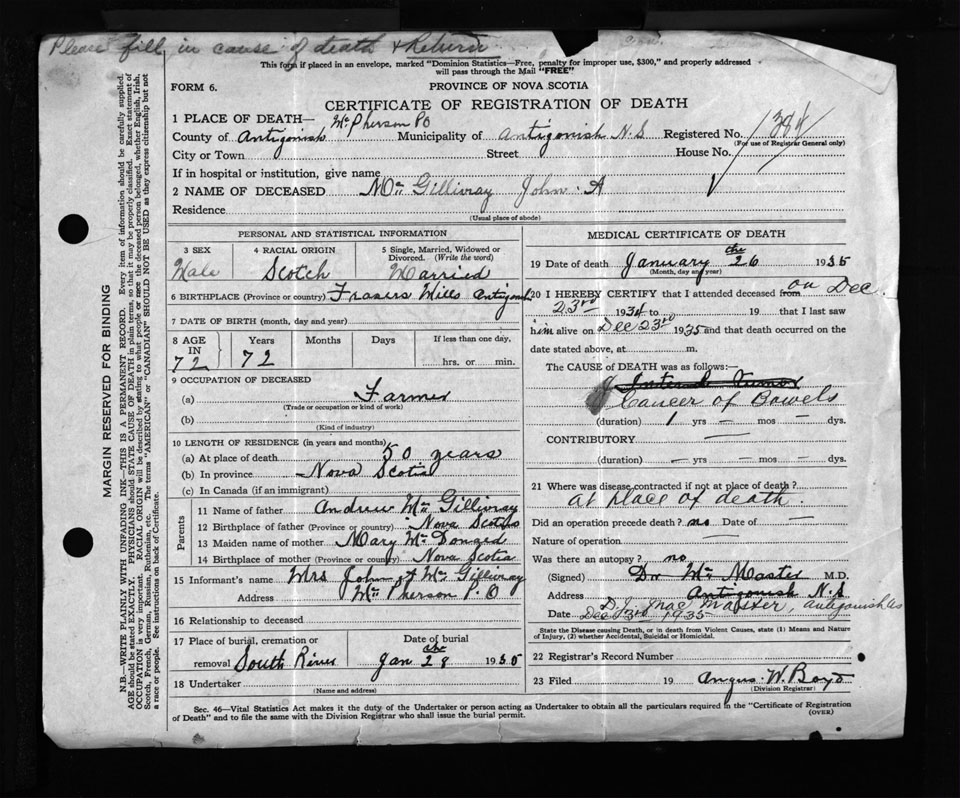 Please fill in cause of death & Return
This form if placed in an envelope, marked "Dominion Statistics—Free, penalty for improper use, $300," and properly addressed
will pass through the Mail "FREE"
FORM 6.
PROVINCE OF NOVA SCOTIA
CERTIFICATE OF REGISTRATION OF DEATH
1 PLACE OF DEATH— McPherson PO
County of Antigonish Municipality of Antigonish N.S Registered No.
(For use of Registrar General only)
City or Town Street House No.
If in hospital or institution, give name
2 NAME OF DECEASED Mc Gillivray John A
Residence
(Usual place of abode)
PERSONAL AND STATISTICAL INFORMATION
3 SEX 4 RACIAL ORIGIN 5 Single, Married, Widowed or Divorced. (Write the word)
Male Scotch Married
6 BIRTHPLACE (Province or country) Frasers Mills Antigonish
7 DATE OF BIRTH (month, day and year)
8 AGE IN Years Months Days If less than one day,
72 72 hrs. or min.
9 OCCUPATION OF DECEASED
(a) Farmer
(Trade or occupation or kind of work)
(b)
(Kind of industry)
10 LENGTH OF RESIDENCE (in years and months)
(a) At place of death 50 years
(b) In province Nova Scotia
(c) In Canada (if an immigrant)
Parents
11 Name of father Andrew Mc Gillivray
12 Birthplace of father (Province or country) Nova Scotia
13 Maiden name of mother Mary
14 Birthplace of mother (Province or country) Nova Scotia
15 Informant's name Mrs John A Mc Gillivray
Address Mc Pherson P.O
16 Relationship to deceased
17 Place of burial, cremation or Date of burial
removal South River Jan 28 the 1935
18 Undertaker
(Name and address)
MEDICAL CERTIFICATE OF DEATH
19 Date of death January 26 the 1935
(Month, day and year)
20 I HEREBY CERTIFY that I attended deceased from on Dec
23rd 1934 to 19 that I last saw
him alive on Dec 23rd 1935 and that death occurred on the
date stated above, at m.
The CAUSE OF DEATH was as follows:—
Tumor
Cancer of Bowels
(duration) 1 yrs — mos — dys.
CONTRIBUTORY —
(duration) — yrs — mos — dys.
21 Where was disease contracted if not at place of death?
at place of death.
Did an operation precede death? no Date of —
Nature of operation —
Was there an autopsy? no
(Signed) Dr Mc Master M.D.
Address Antigonish N.S
MacMaster, Antigonish
Date 1935
State the Disease causing Death, or in death from Violent Causes, state (1) Means and Nature of Injury, (2) whether Accidental, Suicidal or Homicidal.
22 Registrar's Record Number
23 Filed 19 Angus W. Boyd
(Division Registrar)
Sec. 46—Vital Statistics Act makes it the duty of the Undertaker or person acting as Undertaker to obtain all the particulars required in the "Certificate of Registration
of Death" and to file the same with the Division Registrar who shall issue the burial permit.
(OVER)
MARGIN RESERVED FOR BINDING
N.B.—WRITE PLAINLY WITH UNFADING INK—THIS IS A PERMANENT RECORD. Every item of information should be carefully supplied.
AGE should be stated EXACTLY. PHYSICIANS should STATE CAUSE OF DEATH in plain terms, so that it may be properly classified. Exact statement of
OCCUPATION is very important. RACIAL ORIGIN will be described by stating to what people or race the deceased person belonged, whether English, Irish,
Scotch, French, German, Russian, Ruthenian, etc. The terms "AMERICAN" or "CANADIAN" SHOULD NOT BE USED as they express citizenship but not
a race or people. See instructions on back of Certificate.